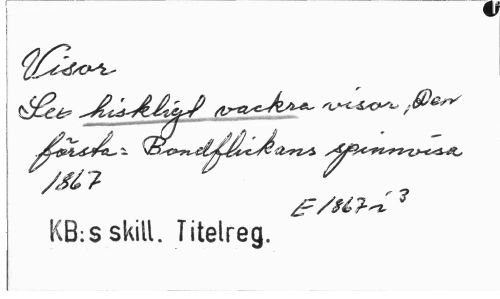 Visor
Sex hiskligt vackra visor, Den
första: Bondflickans spinnvisa
1867
E 1867 i 3
KB:s skill. Titelreg.